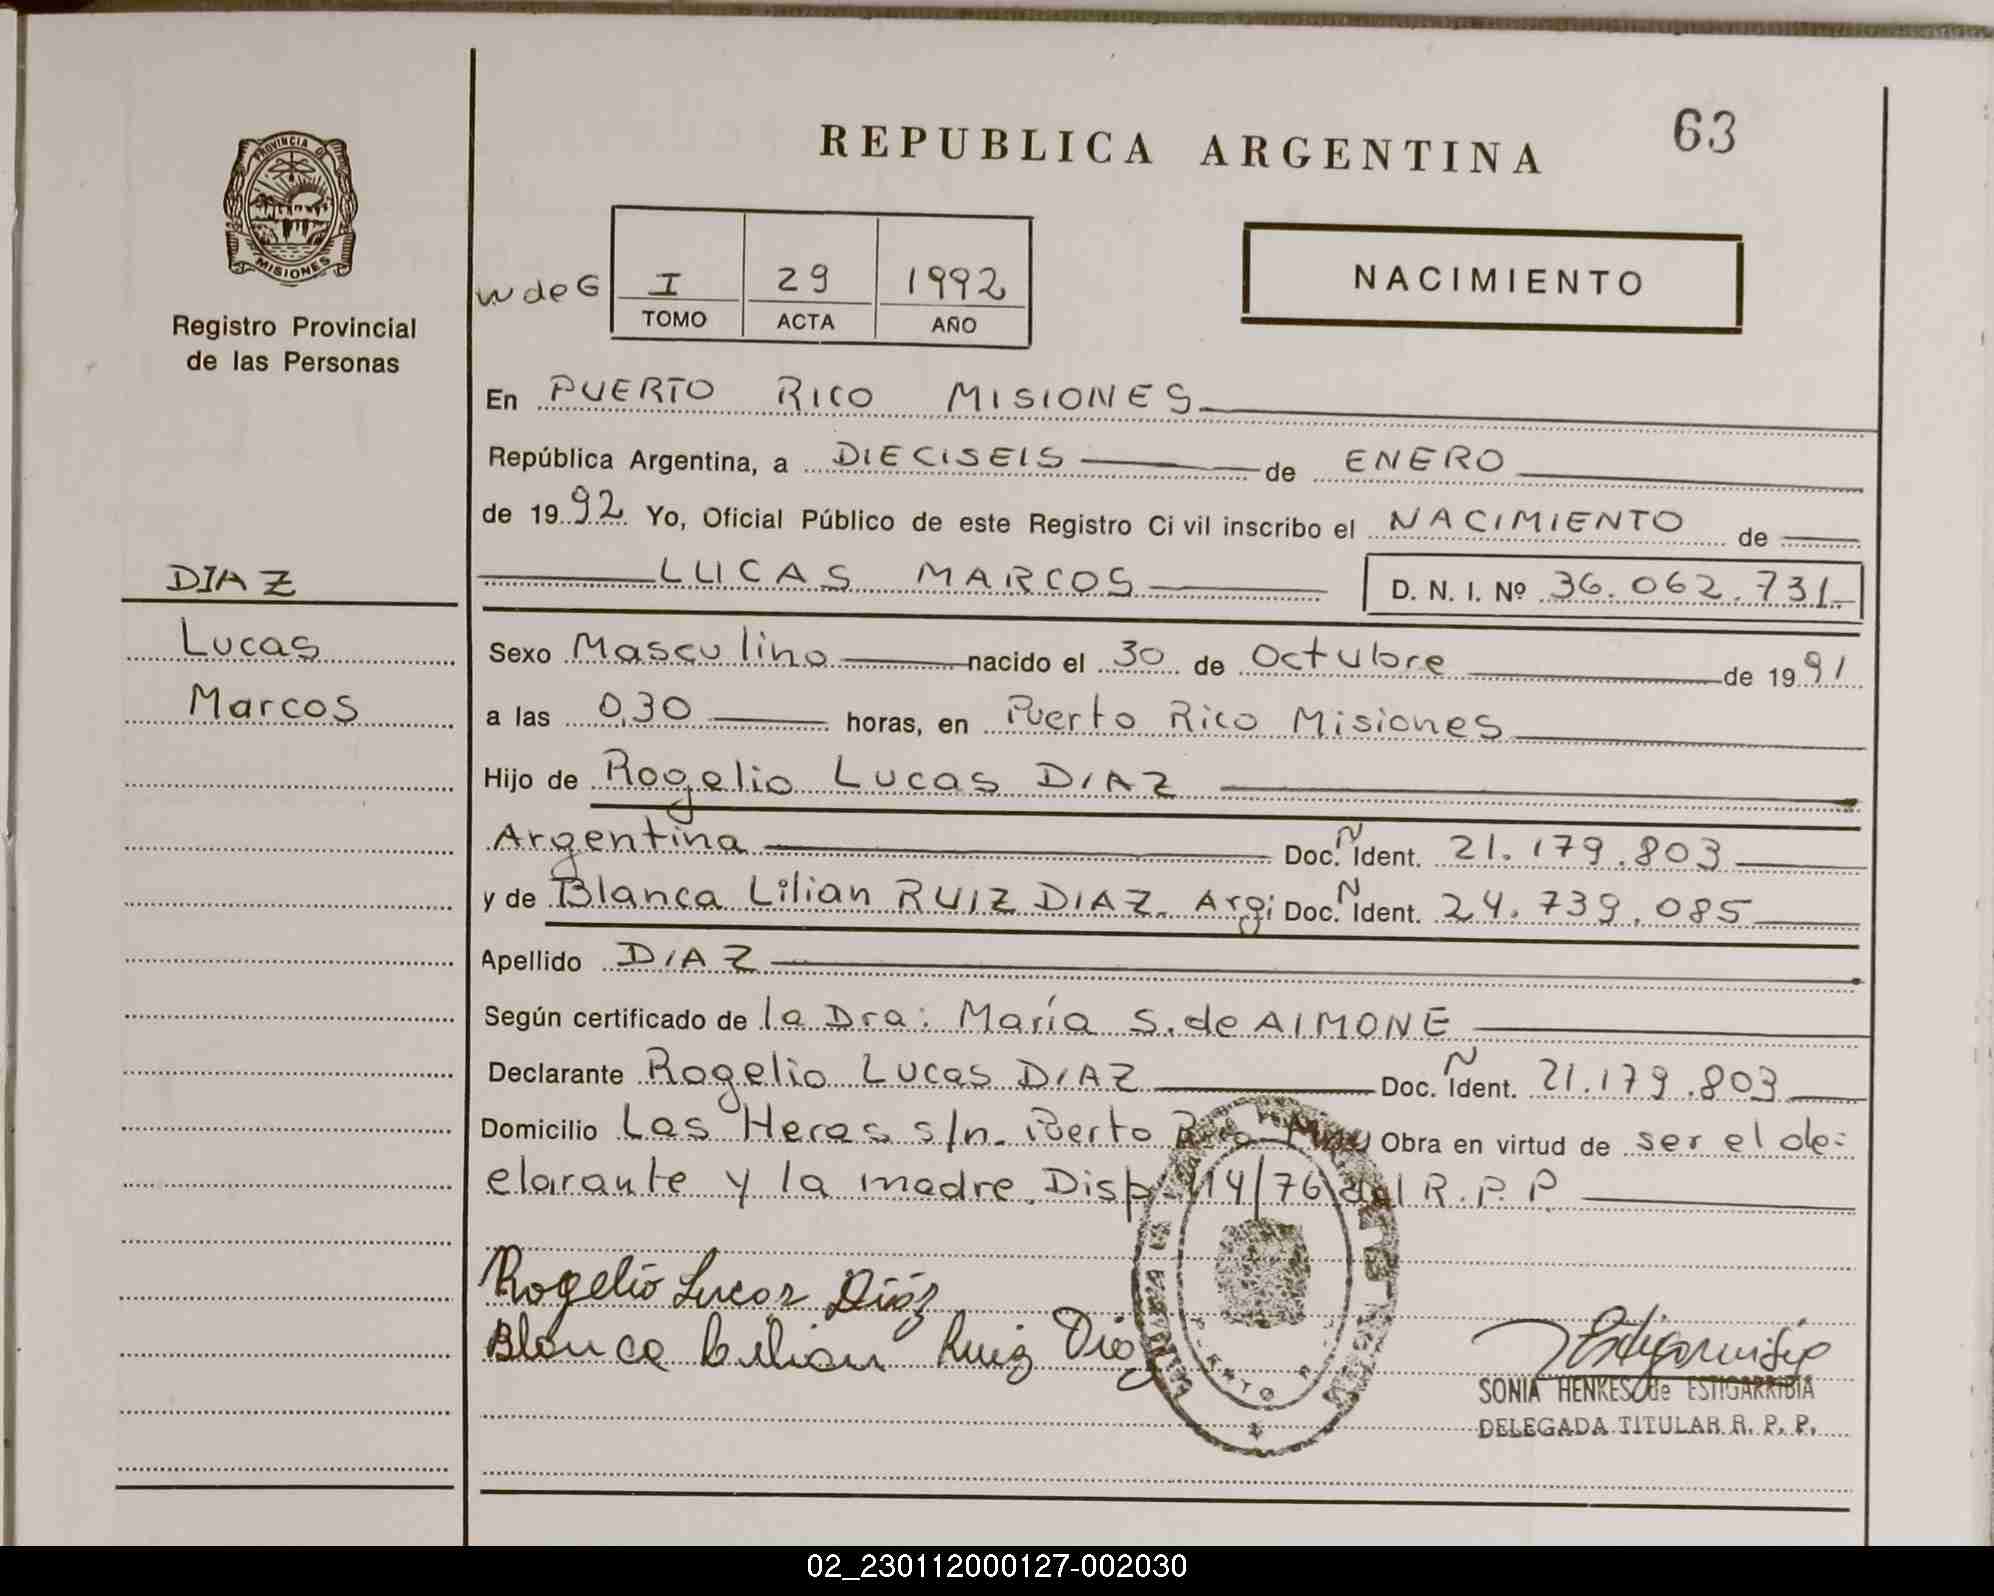 REPUBLICA ARGENTINA
63
PROVINCIA D
MISIONES
Registro Provincial
de las Personas
w de G
I 29 1992
TOMO ACTA AÑO
NACIMIENTO
En PUERTO RICO MISIONES
República Argentina, a DIECISEIS de ENERO
de 1992 Yo, Oficial Público de este Registro Ci vil inscribo el NACIMIENTO de
LUCAS MARCOS D. N. I. Nº 36.062.731
DIAZ
Lucas
Marcos
Sexo Masculino nacido el 30 de Octubre de 1991
a las 0,30 horas, en Puerto Rico Misiones
Hijo de Rogelio Lucas DIAZ
Argentina Doc. Ñ Ident. 21.179.803
y de Blanca Lilian RUIZ DIAZ. Arg; Doc. Ñ Ident. 24.739.085
Apellido DIAZ
Según certificado de la Dra: María S. de AIMONE
Declarante Rogelio Lucas DIAZ Doc. Ñ Ident. 21.179.803
Domicilio Las Heras s/n. Puerto Rico Mnes Obra en virtud de ser el de=
clarante y la madre. Disp. 114/76 del R.P.P
Rogelio Lucas Diaz
Blanca Lilian Ruiz Diaz
SONIA HENKES de ESTIGARRIBIA
DELEGADA TITULAR R. P. P.
02_230112000127-002030